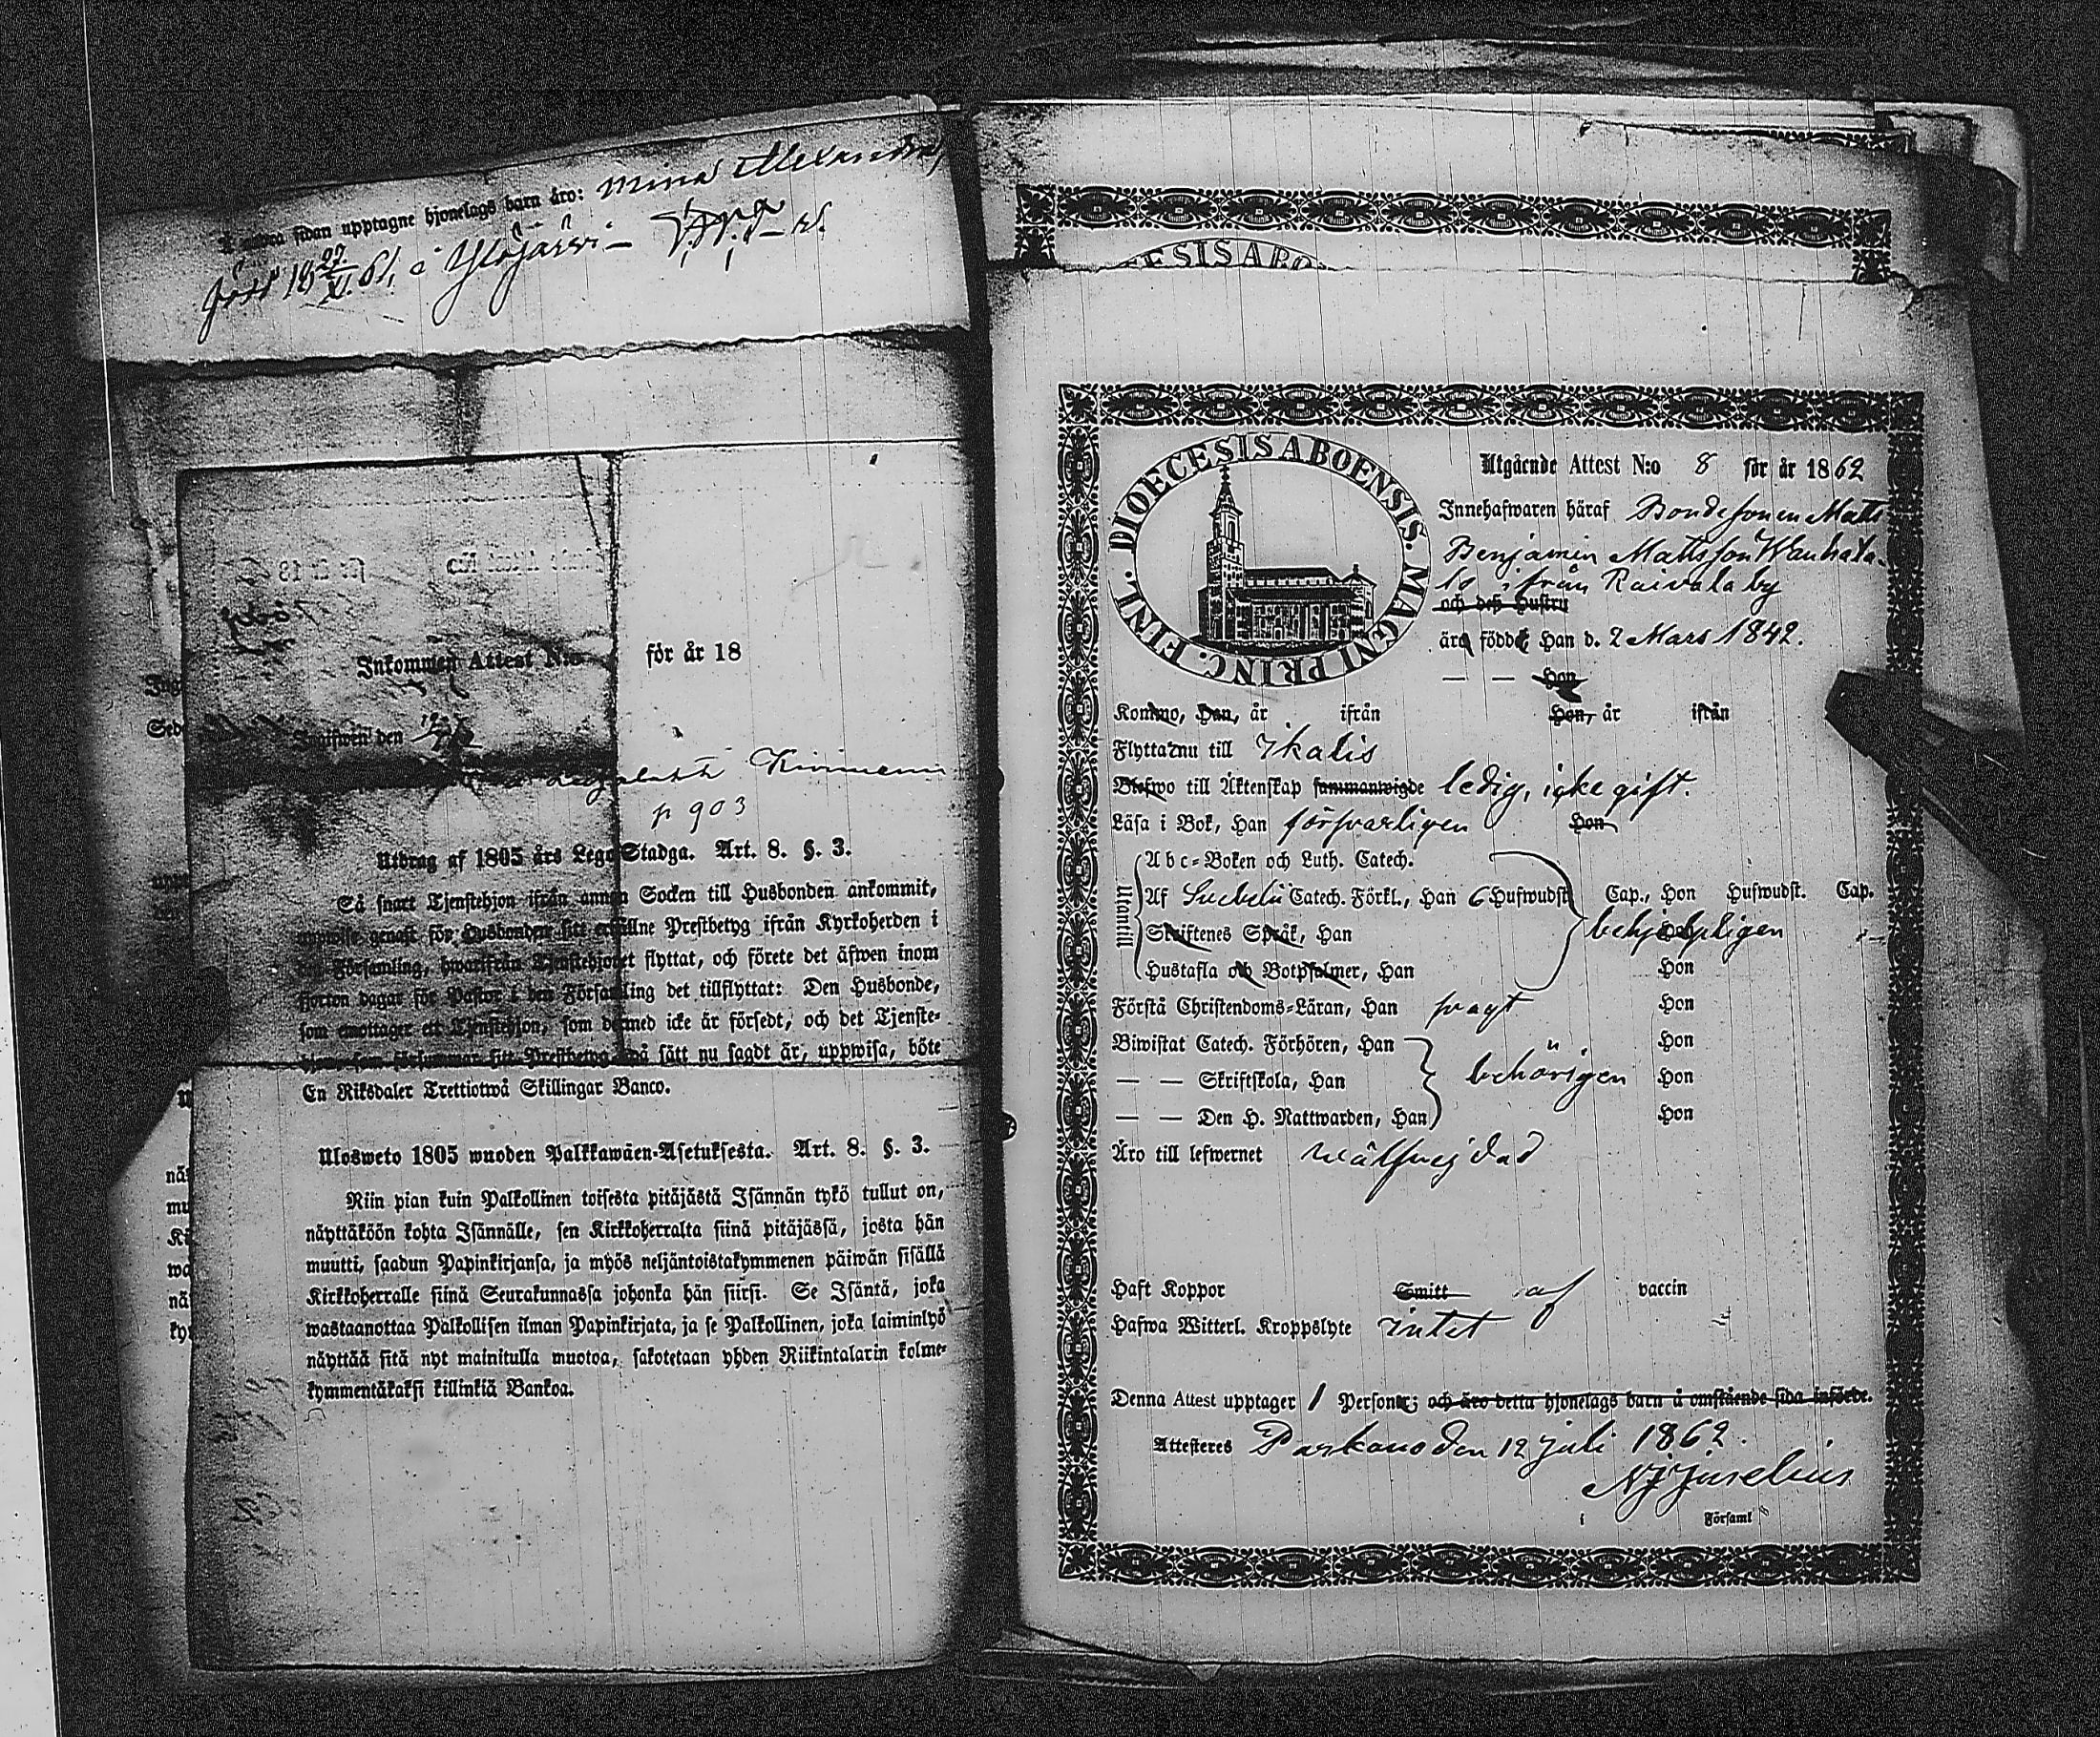 å andra sidan upptagne hjonelags barn äro: Mina Alexandra,
född 18 27/XI. 61, i Ylöjärvi
Inkommen Attest N:o för år 18
Ingifwen den
p 903
Utdrag af 1805 års Lego Stadga. Art. 8. §. 3.
Så snart Tjenstehjon ifrån annan Socken till Husbonden ankommit,
uppwise genast för Husbonden sitt erhållne Prestbetyg ifrån Kyrkoherden i
den Församling, hwarifrån Tjenstehjonet flyttat, och förete det äfwen inom
fjorton dagar för Pastor i den Församling det tillflyttat: Den Husbonde,
som emottager ett Tjenstehjon, som dermed icke är försedt, och det Tjenste-
hjon, som försummar sitt Prestbetyg, på sätt nu sagdt är, uppwisa, böte
En Riksdaler Trettiotwå Skillingar Banco.
Ulosweto 1805 wuoden Palkkawäen-Asetuksesta. Art. 8. §. 3.
Niin pian kuin Palkollinen toisesta pitäjästä Isännän tykö tullut on,
näyttäköön kohta Isännälle, sen Kirkkoherralta siinä pitäjässä, josta hän
muutti, saadun Papinkirjansa, ja myös neljäntoistakymmenen päiwän sisällä
Kirkkoherralle siinä Seurakunnassa johonka hän siirsi. Se Isäntä, joka
wastaanottaa Palkollisen ilman Papinkirjata, ja se Palkollinen, joka laiminlyö
näyttää sitä nyt mainitulla muotoa, sakotetaan yhden Riikintalarin kolme-
kymmentäkaksi killinkiä Bankoa.
DIOECESIS ABOENSIS. MAGNI PRINC. FINL.
Utgående Attest N:o 8 för år 1862
Innehafwaren häraf Bondesonen Matts
Benjamin Mattsson Wanhata-
lo ifrån Raivala by
och deß Hustru
äro födde Han d. 2 Mars 1842.
— — Hon
Kommo, Han, år ifrån Hon, år ifrån
Flytta nu till Ikalis
Blefwo till Äktenskap sammanwigde ledig, icke gift.
Läsa i Bok, Han försvarligen Hon
Utantill
Abc-Boken och Luth. Catech.
Af Svebelii Catech. Förkl., Han 6 Hufwudst. Cap., Hon Hufwudst. Cap.
Skriftenes Språk, Han behjelpligen
Hustafla och Botpsalmer, Han Hon
Förstå Christendoms-Läran, Han svagt Hon
Biwistat Catech. Förhören, Han Hon
— — Skriftskola, Han behörigen Hon
— — Den H. Nattwarden, Han Hon
Äro till lefwernet wälfrejdad
Haft Koppor Smitt af vaccin
Hafwa Witterl. Kroppslyte intet
Denna Attest upptager 1 Personer; och äro detta hjonelags barn å omstående sida införde.
Attesteres Parkano den 12 Juli 1862.
NJ Juselius
i Församl